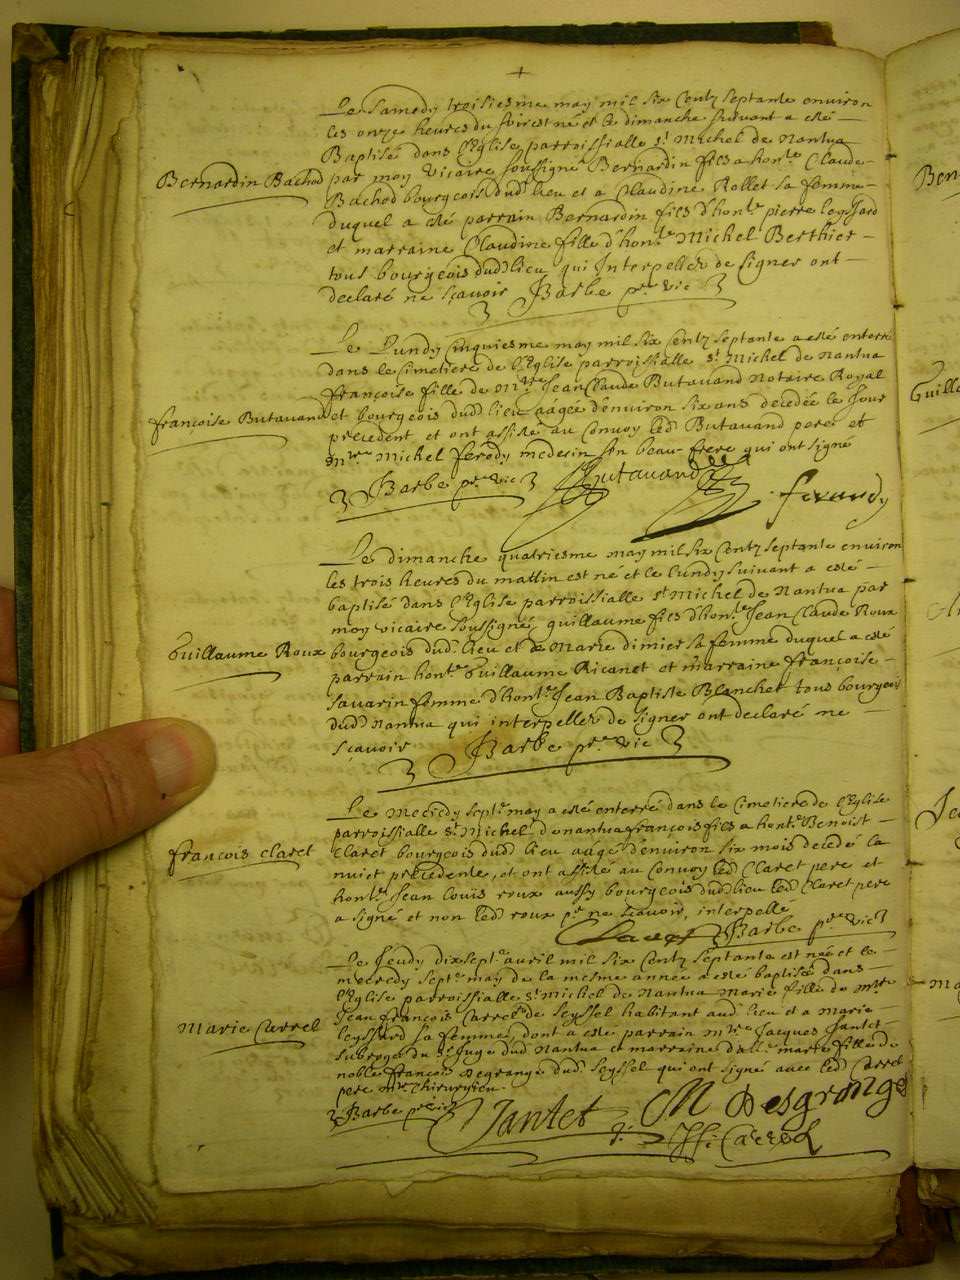 +
Le Samedy troisiesme may mil six Centz septante environ
les onze heures du soir est né et le dimanche suivant a esté
Baptisé dans l'Eglise parroissialle st Michel de Nantua
Bernardin Bachod
par moy vicaire soussigné Bernardin fils a honble Claude
Bachod bourgeois dud lieu et a Claudine Rollet sa femme
duquel a esté parrain Bernardin fils d'honble pierre leyssard
et marraine Claudine fille d'honble Michel Berthier
tous bourgeois dud lieu qui Interpellez de signer ont
declaré ne sçavoir Barbe pre vic
Le Lundy Cinquiesme may mil six Centz septante a esté enterré
dans le Cimetiere de l'Eglise parroissialle st Michel de Nantua
françoise fille de Mtre Jean Claude Butavand Notaire Royal
françoise Butavand
et bourgeois dud lieu aagée d'environ six ans decedée le Jour
precedent et ont assisté au Convoy led Butavand pere et
Mtre Michel ferody medesin son beau frere qui ont signé
Barbe pre vic Butavand
Le dimanche quatriesme may mil six Centz septante environ
les trois heures du mattin est né et le Lundy suivant a esté
baptisé dans l'Eglise parroissialle st Michel de Nantua par
moy vicaire soussigné guillaume fils d'honble Jean Claude Roux
Guillaume Roux
bourgeois dud lieu et de Marie dimier sa femme duquel a esté
parrain honble Guillaume Ricanet et marraine françoise
savarin femme d'honble Jean Baptiste Blanchet tous bourgeois
dud Nantua qui interpellez de signer ont declaré ne
sçavoir Barbe pre vic
Le Mecredy septe may a esté enterré dans le Cimetiere de l'Eglise
parroissialle st Michel de nantua françois fils a honble Benoist
françois Claret
Claret bourgeois dud lieu aagé d'environ six mois decedé la
nuict precedente, et ont assisté au Convoy led Claret pere et
honble Jean Louis roux aussy bourgeois dud lieu led Claret pere
a signé et non led roux pr ne sçavoir, interpellé
Claret Barbe pre vic
Le Jeudy dix septe avril mil six Centz septante est née et le
mecredy septe may de la mesme année a esté baptisée dans
l'Eglise parroissialle st Michel de Nantua Marie fille de Mtre
Jean françois Carrel de seyssel habitant aud lieu et a Marie
Marie Carrel
leyssard sa femme, dont a esté parrain Mtre Jacques Jantet
subrogé du st Juge dud Nantua et marraine marie fille de
noble françois Degrange dud seyssel qui ont signé avec led Carrel
pere mtre chirurgien.
Barbe pre vic Jantet M Desgrange
Carrel